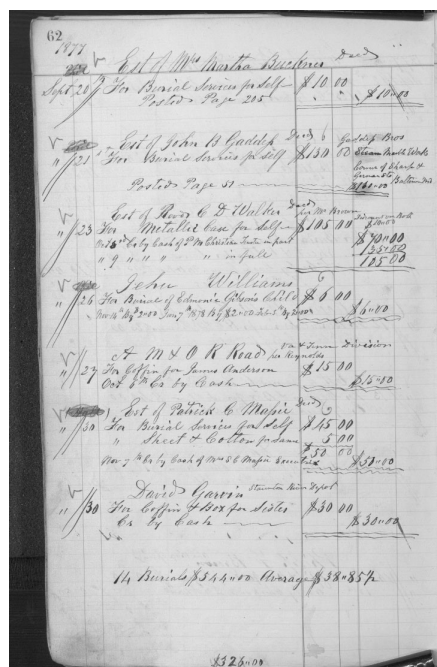 62
1877
Est of Mrs Martha Buckner Decd
Sept 20 For Burial Services for Self $10 00
Posted Page 205 $10 00
Est of John B Gaddess Decd Gaddess Bros
" 21 For Burial Services for Self $130 00 Steam Marble Works
Corner of Sharp &
Posted Page 51 Baltimore Md
Est of Revd C D Walker Decd per Mr Brown
" 23 For Metallic Case for Self $105 00
Cr by Cash of in part $70 00
" " " " in full 35 00
105 00
John Williams
" 26 For Burial of Edmonia Gibson's Child $6 00
Nov 14th By $2 00 Jany 7th 1878 By $2 00 Feb 5th By 2 00 $6 00
A M & O R Road Va & Tenn Division
per Reynolds
" 27 For Coffin for James Anderson $15 00
Oct 8th Cr by Cash $15 00
Est of Patrick C Massie Decd
" 30 For Burial Services for Self $45 00
" Sheet & Cotton for Same 5 00
$50 00
Nov 7th Cr by Cash of Mrs S C Massie Executrix $50 00
David Garvin Staunton River Depot
" 30 For Coffin & Box for Sister $30 00
Cr by Cash $30 00
14 Burials $544 00 Average $38 85½
$326 00